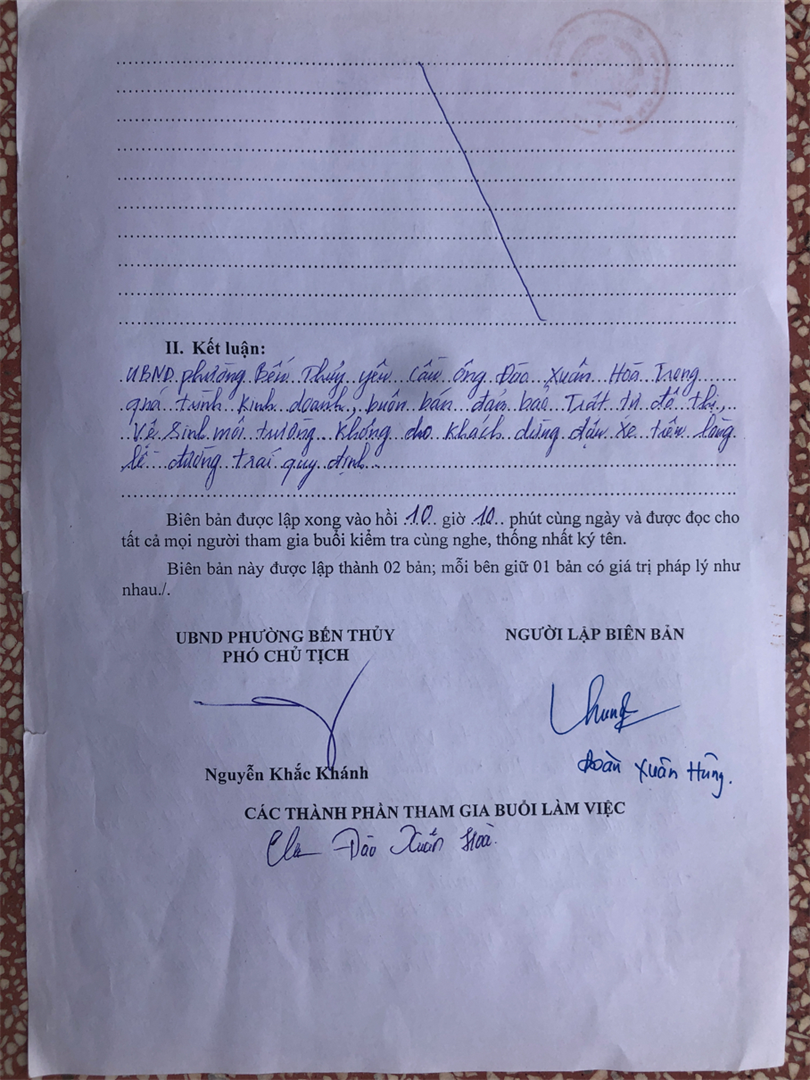 II. Kết luận:
UBND phường Bến Thủy yêu cầu ông Đào Xuân Hoà Trong
quá trình kinh doanh, buôn bán đảm bảo Trật tự đô thị,
Vệ sinh môi trường không cho khách dừng đậu xe trên lòng
lề đường trái quy định
Biên bản được lập xong vào hồi 10 giờ 10 phút cùng ngày và được đọc cho
tất cả mọi người tham gia buổi kiểm tra cùng nghe, thống nhất ký tên.
Biên bản này được lập thành 02 bản; mỗi bên giữ 01 bản có giá trị pháp lý như
nhau./.
UBND PHƯỜNG BẾN THỦY
PHÓ CHỦ TỊCH
Nguyễn Khắc Khánh
NGƯỜI LẬP BIÊN BẢN
Đoàn Xuân Hùng.
CÁC THÀNH PHẦN THAM GIA BUỔI LÀM VIỆC
Đào Xuân Hoà